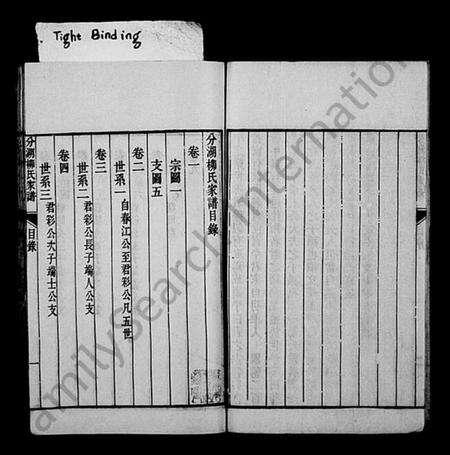 Tight Binding
分湖柳氏家譜目錄
卷一
宗圖一
支圖五
卷二
世系一 自春江公至君彩公凡五世
卷三
世系二 君彩公長子端人公支
卷四
世系三 君彩公次子端士公支
分湖柳氏家譜
目錄
一
FamilySearch International